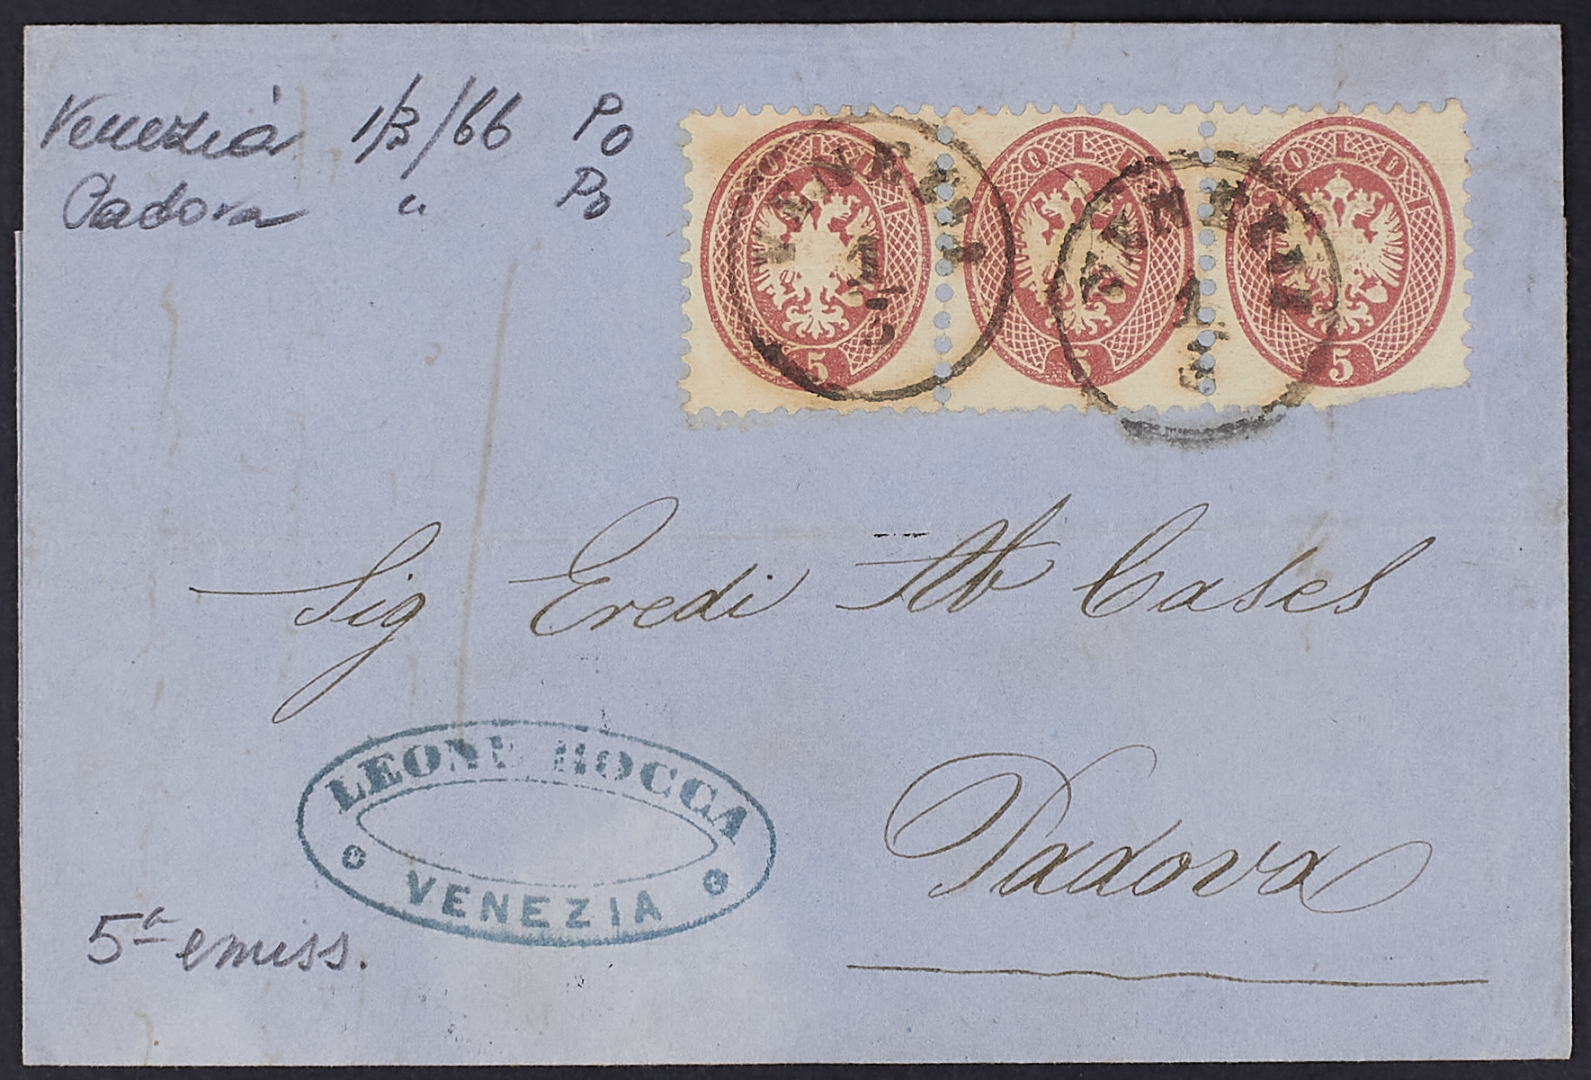 Venezia 1/3/66 Po
Padova " Po
SOLDI SOLDI SOLDI
5 5 5
VENEZIA
1
3
VENEZIA
1
3
Sig Eredi Ab Cases
Padova
LEONE ROCCA
VENEZIA
5a emiss.